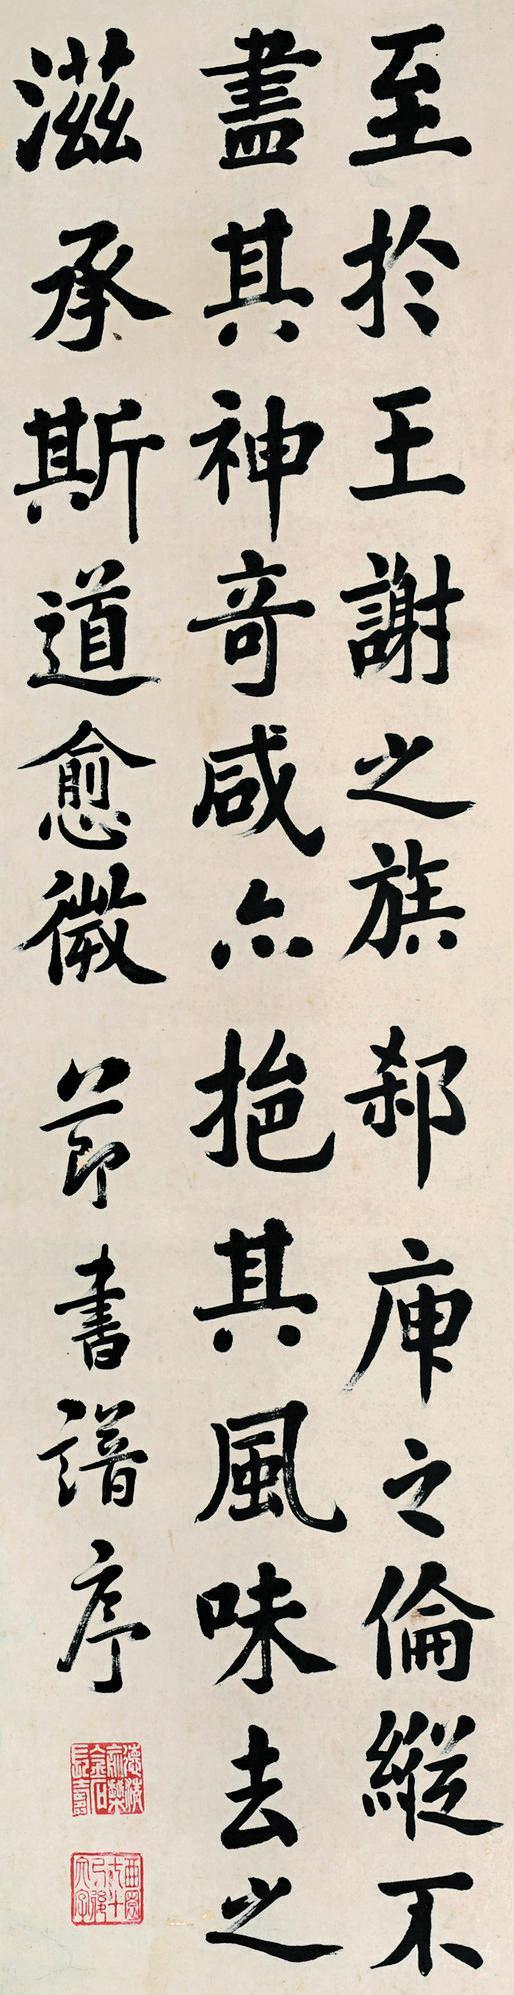 至於王謝之族郄庾之倫縱不
盡其神奇咸亦挹其風味去之
滋承斯道愈微
節書譜序